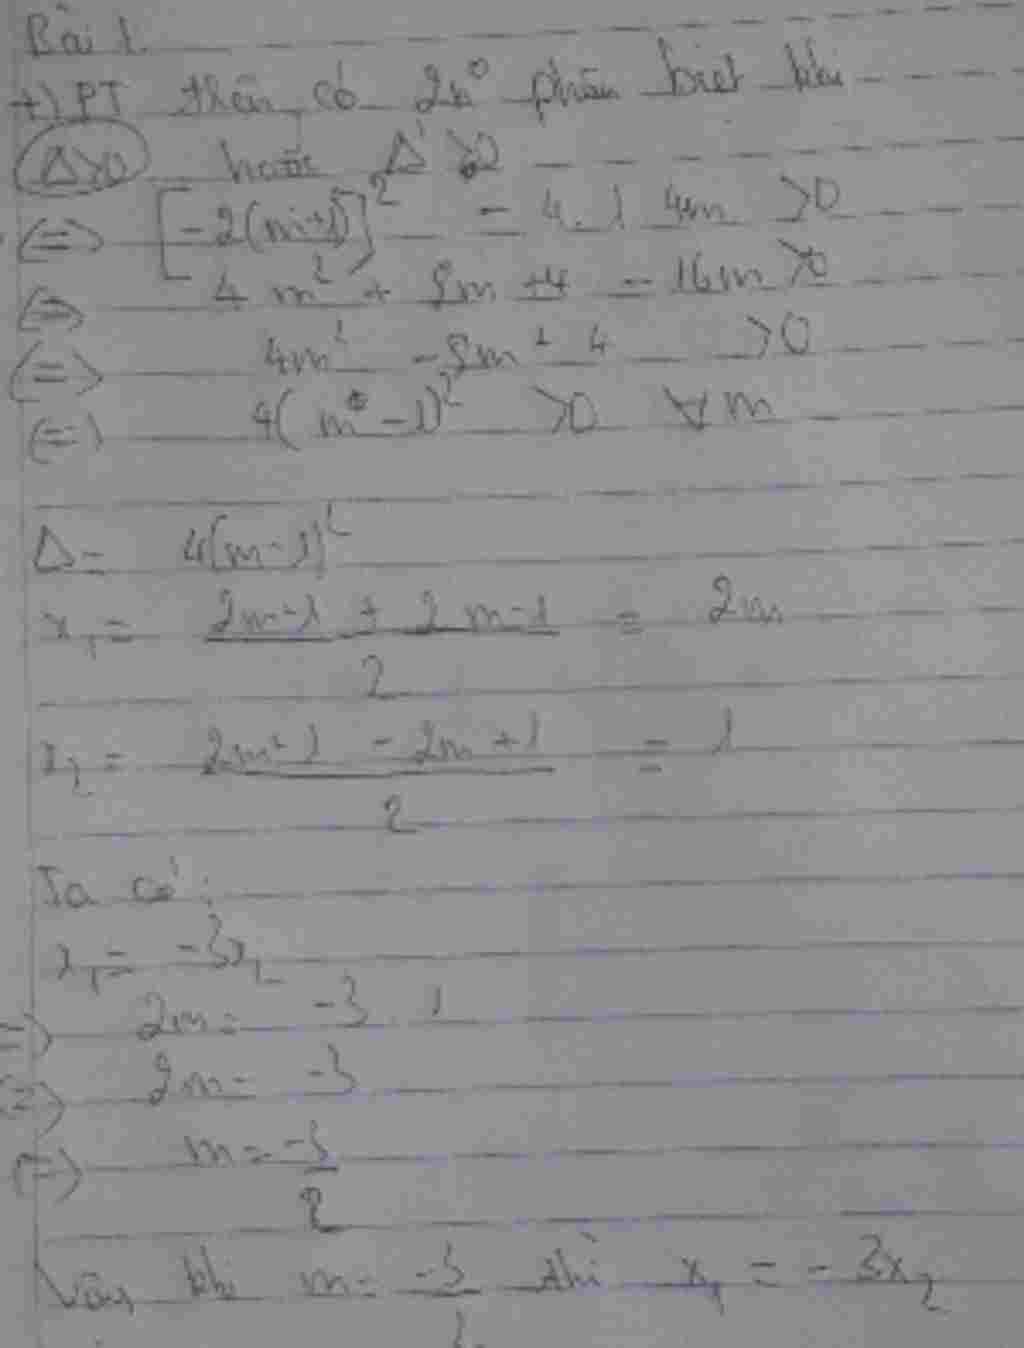 Bài 1.
+) PT trên có 2n⁰ phân biệt khi
Δ>0 hoặc Δ' >0
(=) [-2(m+1)]² - 4.1 4m >0
(=) 4m² + 8m +4 - 16m >0
(=) 4m² - 8m + 4 >0
(=) 4(m - 1)² >0 ∀m
Δ = 4(m-1)²
x₁ = (2m-1 + 2m-1)/2 = 2m
x₂ = (2m+1 - 2m+1)/2 = 1
Ta có:
x₁ = -3x₂
=) 2m = -3 . 1
(=) 2m = -3
(=) m = -3/2
Vậy khi m = -3/2 thì x₁ = -3x₂